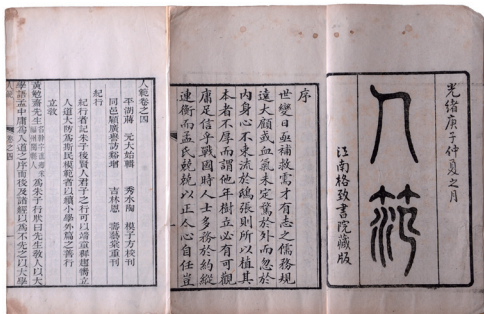 光緒庚子仲夏之月
人範
江南格致書院藏版
序
世變日亟補救需才有志之儒務規
遠大顧或血氣未定篤於外而忽於
內身心不束流於鴟張則所以植其
本者不厚而謂他年樹立必有可觀
庸足信乎戰國時人士多務於約縱
連衡而孟氏兢兢以正人心自任豈
人範卷之四
平湖蔣 元大始輯 秀水陶 模子方校刊
同邑顧廣譽訪谿增 吉林恩 壽藝棠重刊
紀行
紀行者記朱子後賢人君子之行可以 立
人道大防為斯民模範者以續小學外篇之善行
立教
黃勉齋先生 為朱子行狀曰先生教人以大
學語孟中庸為入道之序而後及諸經以為不先之以大學